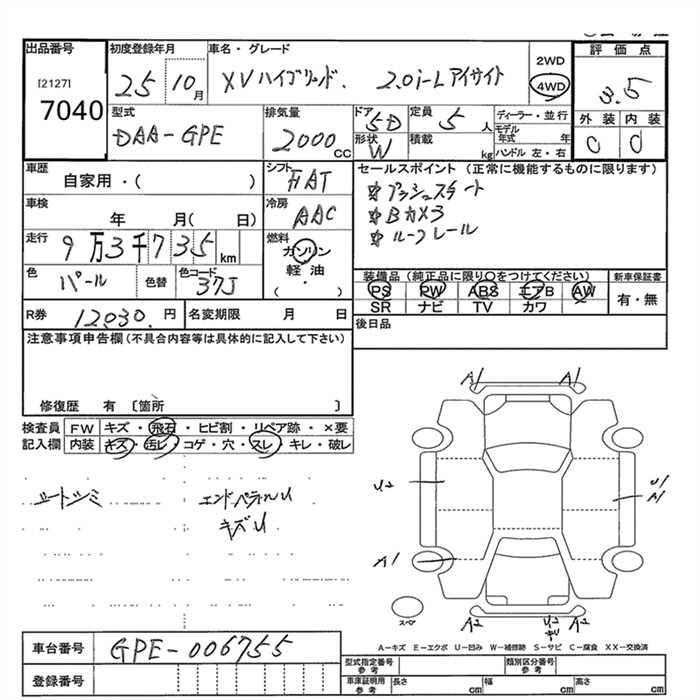 出品番号
[2127]
7040
初度登録年月
25 10月
車名・グレード
XVハイブリッド. 2.0i-Lアイサイト
2WD
4WD
評価点
3.5
外装 内装
C C
型式
DAA-GPE
排気量
2000cc
ドア
5D
形状
W
定員
5人
積載
kg
ディーラー・並行
モデル年式 年
ハンドル 左・右
車歴
自家用・( )
シフト
FAT
車検
年 月( 日)
冷房
AAC
走行
9万3千735km
燃料
ガソリン
軽油
( ・ )
色
パール
色替
色コード
37J
R券
12030.円
名変期限 月 日
セールスポイント(正常に機能するものに限ります)
プッシュスタート
Bカメラ
ルーフレール
装備品(純正品に限り○をつけてください)
PS PW ABS エアB AW
SR ナビ TV カワ
新車保証書
有・無
後日品
注意事項申告欄(不具合内容等は具体的に記入して下さい)
修復歴 有 〔箇所 〕
検査員記入欄
FW キズ・飛石・ヒビ割・リペア跡・×要
内装 キズ・汚レ・コゲ・穴・スレ・キレ・破レ
シートシミ
キズU
A1 A1
U2
U1
A1
A1
A2 U2 A2
キリ
スペア
A−キズ E−エクボ U−凹み W−補修跡 S−サビ C−腐食 XX−交換済
車台番号
GPE-006755
登録番号
型式指定番号
参考
類別区分番号
参考
車庫証明用
参考
長さ cm 幅 cm 高さ cm